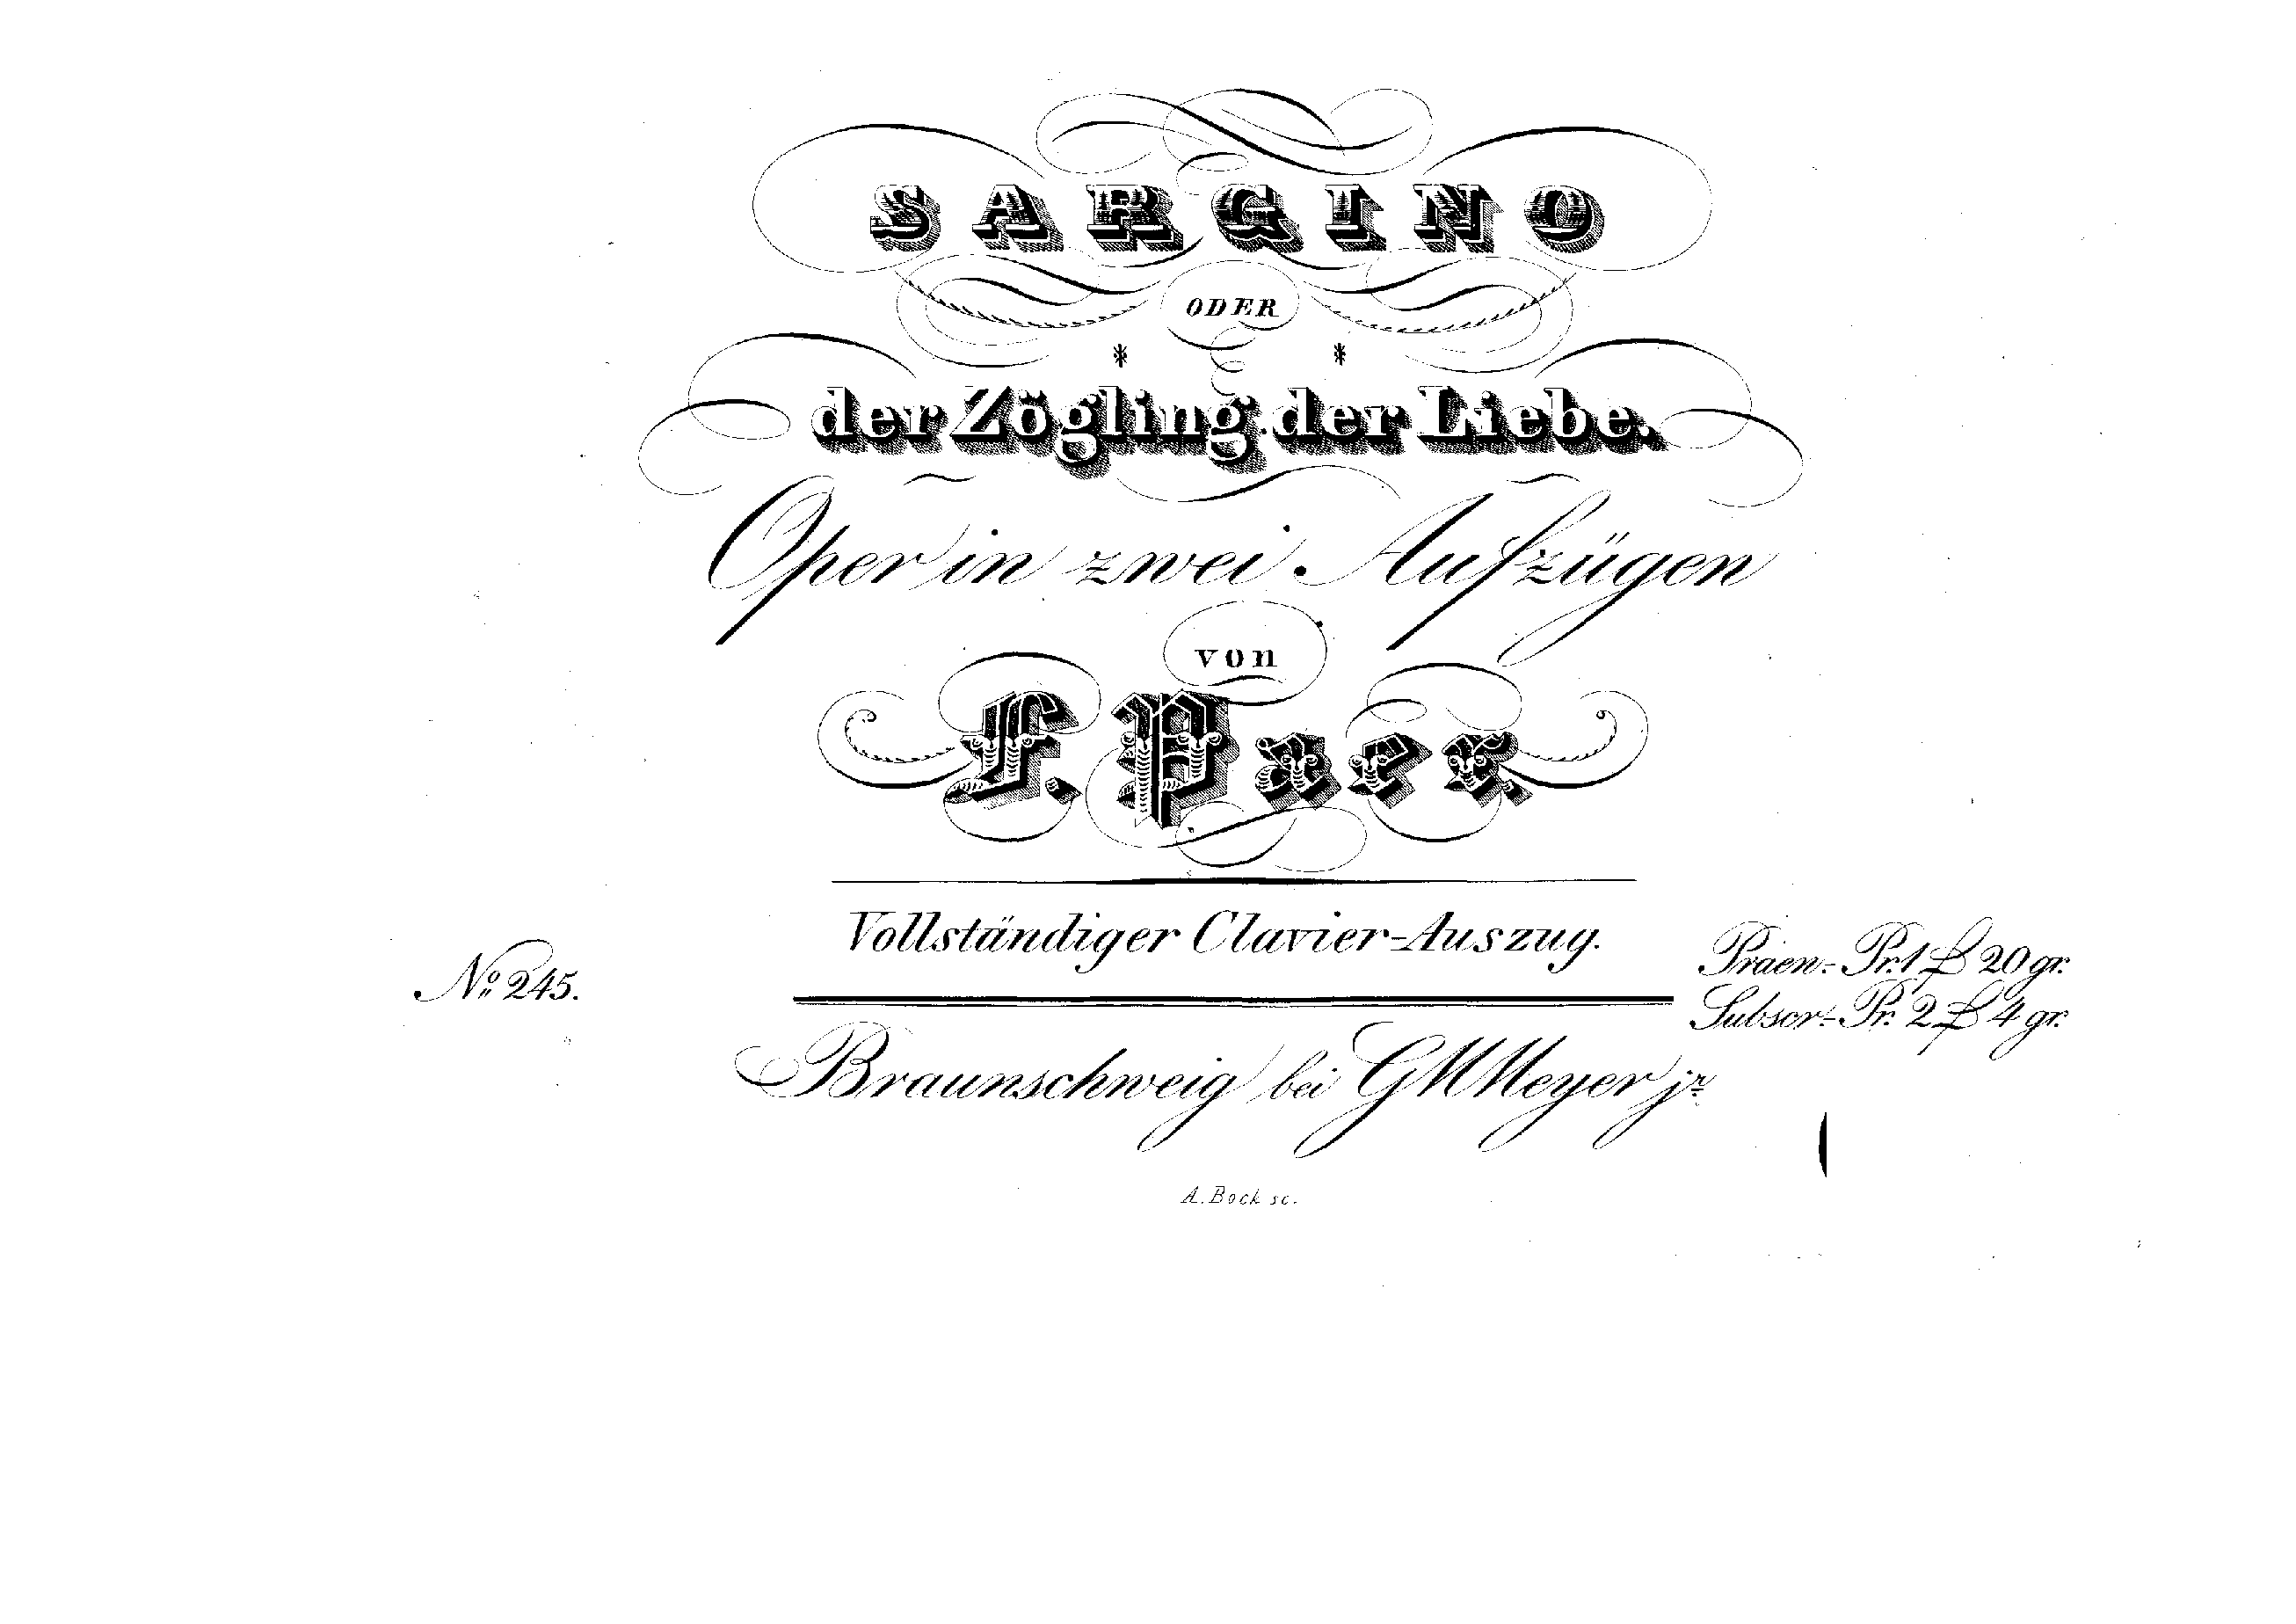 SARGINO
ODER
der Zögling der Liebe.
Oper in zwei Aufzügen
von
F. Paer.
Vollständiger Clavier-Auszug.
No. 245.
Praen.- Pr. 1 ₰ 20 gr.
Subscr.- Pr. 2 ₰ 4 gr.
Braunschweig bei G M Meyer jr.
A. Bock sc.